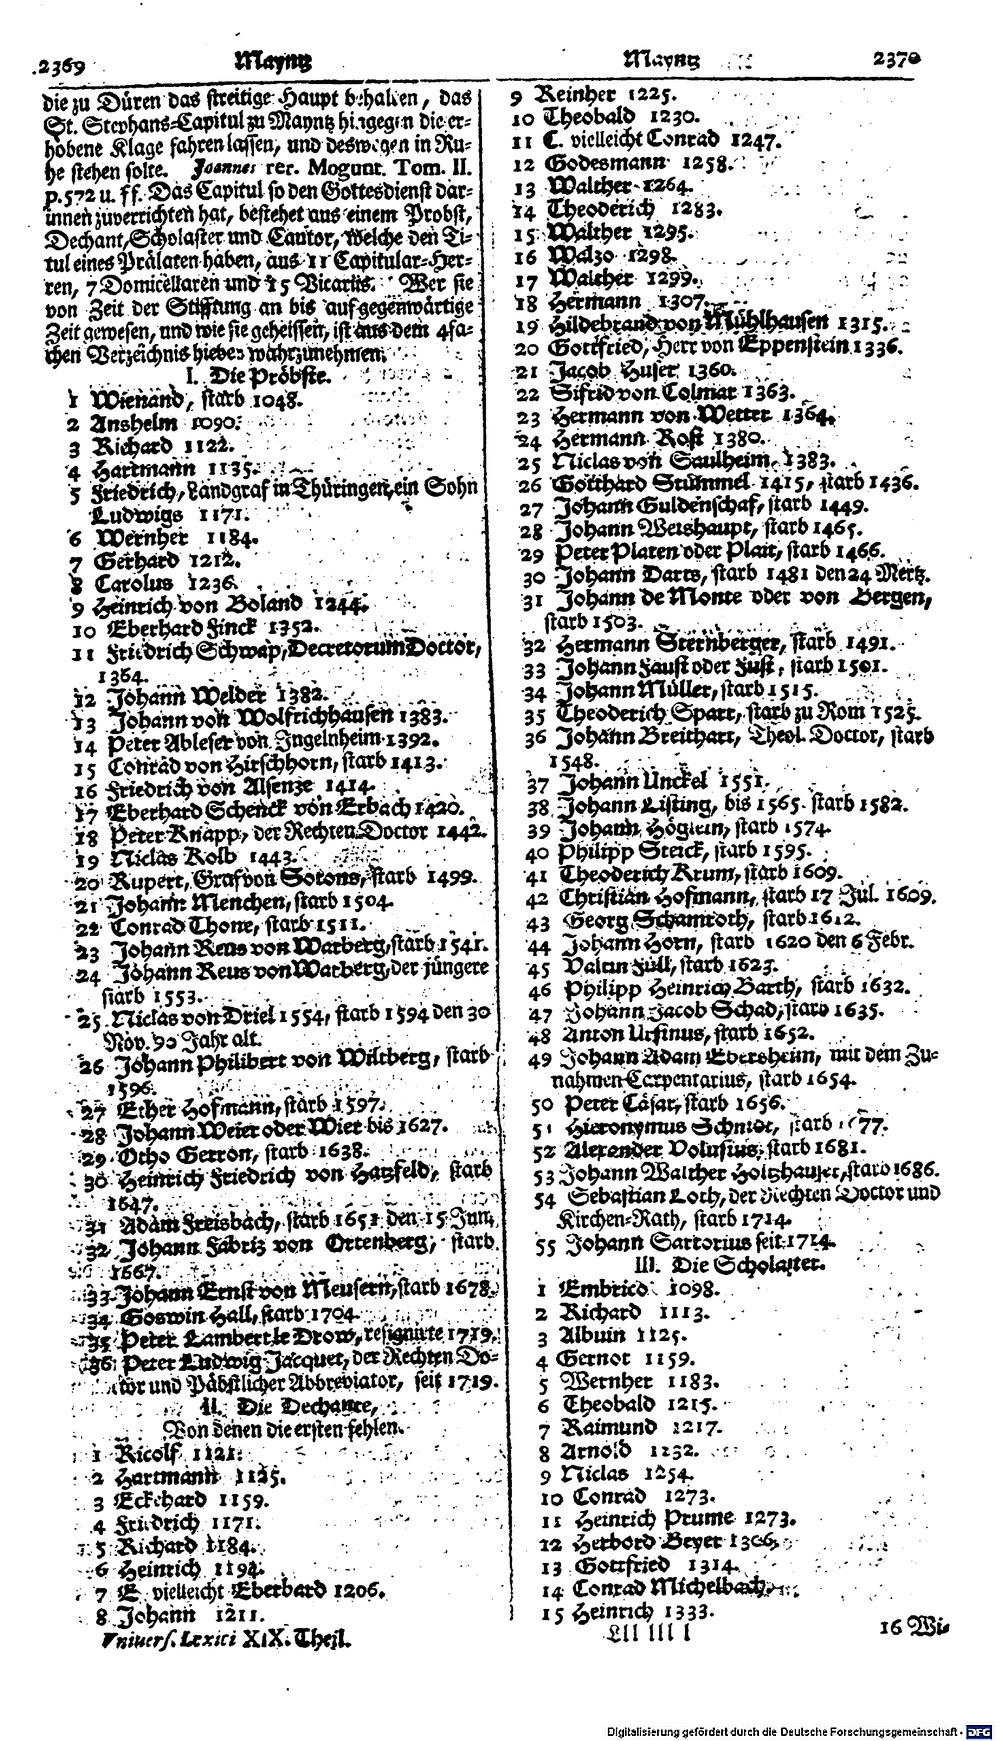 2369 Mayntz
Mayntz 2370
die zu Düren das streitige Haupt behalten, das
St. Stephans-Capitul zu Mayntz hingegen die er-
hobene Klage fahren lassen, und deswegen in Ru-
he stehen solte. Joannes rer. Mogunt. Tom. II.
p. 572 u. ff. Das Capitul so den Gottesdienst dar-
innen zuverrichten hat, bestehet aus einem Probst,
Dechant, Scholaster und Cantor, welche den Ti-
tul eines Prälaten haben, aus 11 Capitular-Her-
ren, 7 Domicellaren und 15 Vicariis. Wer sie
von Zeit der Stifftung an bis auf gegenwärtige
Zeit gewesen, und wie sie geheissen, ist aus dem 4fa-
chen Verzeichnis hiebey wahrzunehmen.
I. Die Pröbste.
1 Wienand, starb 1048.
2 Anshelm 1090.
3 Richard 1122.
4 Hartmann 1135.
5 Friedrich, Landgraf in Thüringen, ein Sohn
Ludwigs 1171.
6 Wernher 1184.
7 Gerhard 1212.
8 Carolus 1236.
9 Heinrich von Boland 1244.
10 Eberhard Finck 1352.
11 Friedrich Schwap, Decretorum Doctor,
1364.
12 Johann Welder 1382.
13 Johann von Wolfrichhausen 1383.
14 Peter Ableser von Ingelnheim 1392.
15 Conrad von Hirschhorn, starb 1413.
16 Friedrich von Alsenze 1414.
17 Eberhard Schenck von Erbach 1420.
18 Peter Knapp, der Rechten Doctor 1442.
19 Niclas Kolb 1443.
20 Rupert, Graf von Solons, starb 1499.
21 Johann Menchen, starb 1504.
22 Conrad Thone, starb 1511.
23 Johann Reus von Warberg, starb 1541.
24 Johann Reus von Warberg, der jüngere
starb 1553.
25 Niclas von Driel 1554, starb 1594 den 30
Nov. 90 Jahr alt.
26 Johann Philibert von Wiltberg, starb
1596.
27 Hofmann, starb 1597.
28 Johann Weier oder Wier bis 1627.
29 Otho Gerron, starb 1638.
30 Heinrich Friedrich von Hatzfeld, starb
1647.
31 Adam Freisbach, starb 1651 den 15 Jun.
32 Johann Fabriz von Ortenberg, starb
1667.
33 Johann Ernst von Meusern, starb 1678.
34 Goswin Hall, starb 1704.
35 Peter Lambert le Drow, resignirte 1719.
36 Peter Ludwig Jacquet, der Rechten Do-
ctor und Päbstlicher Abbreviator, seit 1719.
II. Die Dechante,
Von denen die ersten fehlen.
1 Ricolf 1121.
2 Hartmann 1125.
3 Eckehard 1159.
4 Friedrich 1171.
5 Richard 1184.
6 Heinrich 1194.
7 E. vielleicht Eberhard 1206.
8 Johann 1211.
Univers. Lexici XIX. Theil.
9 Reinher 1225.
10 Theobald 1230.
11 C. vielleicht Conrad 1247.
12 Godesmann 1258.
13 Walther 1264.
14 Theoderich 1283.
15 Walther 1295.
16 Walzo 1298.
17 Walther 1299.
18 Hermann 1307.
19 Hildebrand von Mühlhausen 1315.
20 Gottfried, Herr von Eppenstein 1336.
21 Jacob Huser 1360.
22 Sifrid von Colmar 1363.
23 Hermann von Wetter 1364.
24 Hermann Rost 1380.
25 Niclas von Saulheim 1383.
26 Gotthard Stümmel 1415, starb 1436.
27 Johann Guldenschaf, starb 1449.
28 Johann Weishaupt, starb 1465.
29 Peter Platen oder Plait, starb 1466.
30 Johann Darts, starb 1481 den 24 Mertz.
31 Johann de Monte oder von Bergen,
starb 1503.
32 Hermann Sternberger, starb 1491.
33 Johann Faust oder Fust, starb 1501.
34 Johann Müller, starb 1515.
35 Theoderich Spatt, starb zu Rom 1525.
36 Johann Breithart, Theol. Doctor, starb
1548.
37 Johann Unckel 1551.
38 Johann Listing, bis 1565. starb 1582.
39 Johann Höglein, starb 1574.
40 Philipp Sterck, starb 1595.
41 Theoderich Krum, starb 1609.
42 Christian Hofmann, starb 17 Jul. 1609.
43 Georg Schamroth, starb 1612.
44 Johann Horn, starb 1620 den 6 Febr.
45 Valtin Füll, starb 1623.
46 Philipp Heinrich Barth, starb 1632.
47 Johann Jacob Schad, starb 1635.
48 Anton Ursinus, starb 1652.
49 Johann Adam Ebersheim, mit dem Zu-
nahmen Carpentarius, starb 1654.
50 Peter Cäsar, starb 1656.
51 Hieronymus Schmidt, starb 1677.
52 Alexander Volusius, starb 1681.
53 Johann Walther Holtzhauser, starb 1686.
54 Sebastian Loth, der Rechten Doctor und
Kirchen-Rath, starb 1714.
55 Johann Sartorius seit 1714.
III. Die Scholaster.
1 Embrico 1098.
2 Richard 1113.
3 Albuin 1125.
4 Gernot 1159.
5 Wernher 1183.
6 Theobald 1215.
7 Raimund 1217.
8 Arnold 1232.
9 Niclas 1254.
10 Conrad 1273.
11 Heinrich Prume 1273.
12 Herbord Beyer 1306.
13 Gottfried 1314.
14 Conrad Michelbach
15 Heinrich 1333.
Lll lll l
16 Wi-
Digitalisierung gefördert durch die Deutsche Forschungsgemeinschaft - DFG